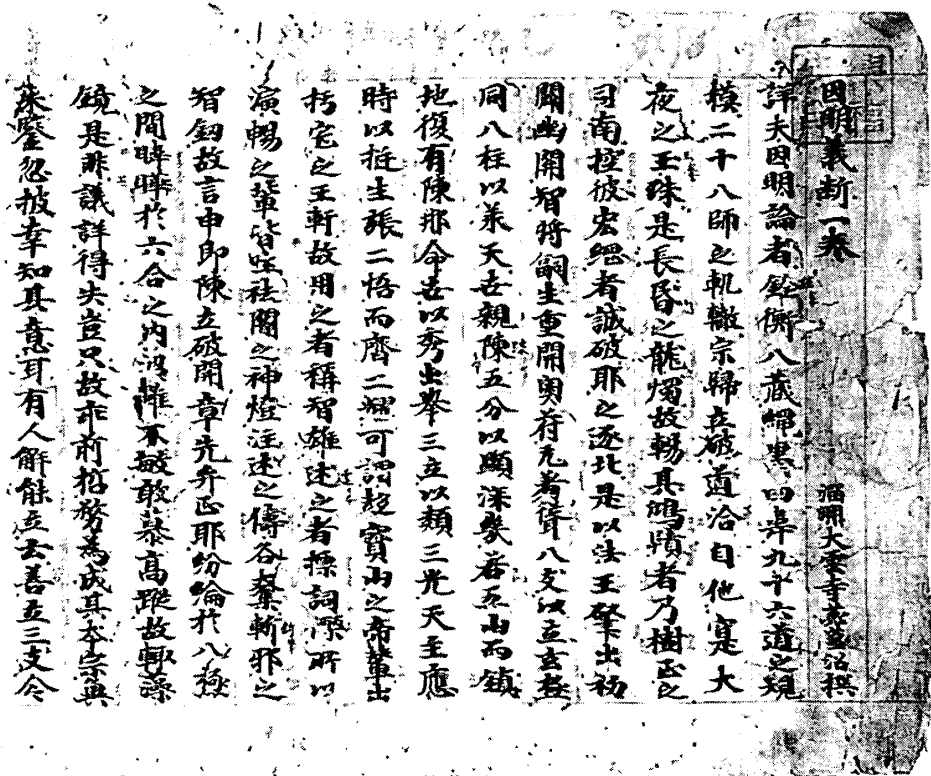 因明義斷一卷 淄州大雲寺苾蒭沼撰
詳夫因明論者銓衡八藏繩墨四韋九十六道之規
模二十八師之軌轍宗歸立破道洽自他寔大
夜之玉珠是長昏之龍燭故暢其鴻隤者乃樹正之
司南控彼宏綱者誠破耶之逐北是以法王肇出初
關幽開智將嗣生重開奧府尤著聳八支以立玄極
同八柱以承天世親陳五分以顯深幾若五山而鎮
地復有陳那命世以秀出舉三立以類三光天主應
時以挺生張二悟而齊二曜可謂趍寶山之帝輦出
朽宅之王軒故用之者稱智雄述之者標詞際所以
演暢之輩皆呈祛闇之神燈注述之儔各奮斬邪之
智劒故言申即陳立破開章先弁正耶紛綸於八極
之間暐曄於六合之内沼雖不敏敢慕高蹤故輙藻
鏡是非議詳得失豈只故乖前招務為成其本宗異
來鑒忽披幸知其意耳有人解能立云善立三支令